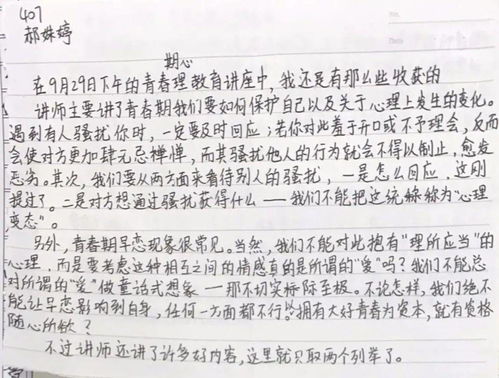 407
郝姝婷
期心
在9月29日下午的青春理教育讲座中，我还是有那么些收获的
讲师主要讲了青春期我们要如何保护自己以及关于心理上发生的变化。
遇到有人骚扰你时，一定要及时回应；若你对此羞于开口或不予理会，反而
会使对方更加肆无忌惮，而其骚扰他人的行为就会不得以制止，愈发
恶劣。其次，我们要从两方面来看待别人的骚扰，一是怎么回应，这刚
提过了，二是对方想通过骚扰获得什么——我们不能把这统称为“心理
变态”。
另外，青春期早恋现象很常见。当然，我们不能对此抱有“理所应当”的
心理，而是要考虑这种相互之间的情感真的是所谓的“爱”吗？我们不能总
对所谓的“爱”做童话式想象——那不切实际至极。不论怎样，我们绝不
能让早恋影响到自身，任何一方面都不行。拥有大好青春为资本，就有资格
随心所欲？
不过讲师还讲了许多好内容，这里就只取两个列举了。